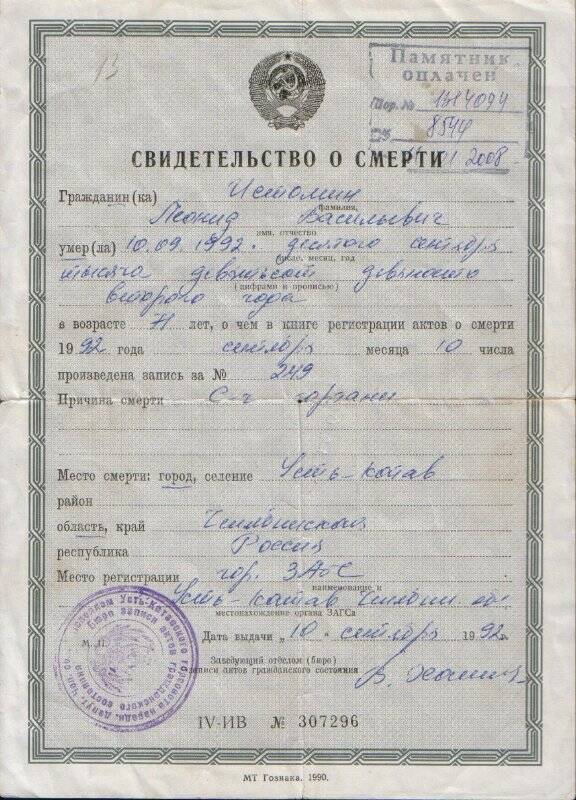 13
Памятник
оплачен
Пор. № 1314094
8544
11 2008
СВИДЕТЕЛЬСТВО О СМЕРТИ
Гражданин(ка) Истомин
фамилия,
Леонид Васильевич
имя, отчество
умер(ла) 10.09.1992. десятого сентября
число, месяц, год
тысяча девятьсот девяносто
(цифрами и прописью)
второго года
в возрасте 71 лет, о чем в книге регистрации актов о смерти
1992 года сентября месяца 10 числа
произведена запись за № 249
Причина смерти С-ч гортани
Место смерти: город, селение Усть-Катав
район
область, край Челябинская
республика Россия
Место регистрации гор. ЗАГС
наименование и
Усть-Катав Челябин. обл
местонахождение органа ЗАГСа
М. П.
Дата выдачи „10" сентября 1992г.
Заведующий отделом (бюро)
записи актов гражданского состояния
IV-ИВ № 307296
МТ Гознака. 1990.